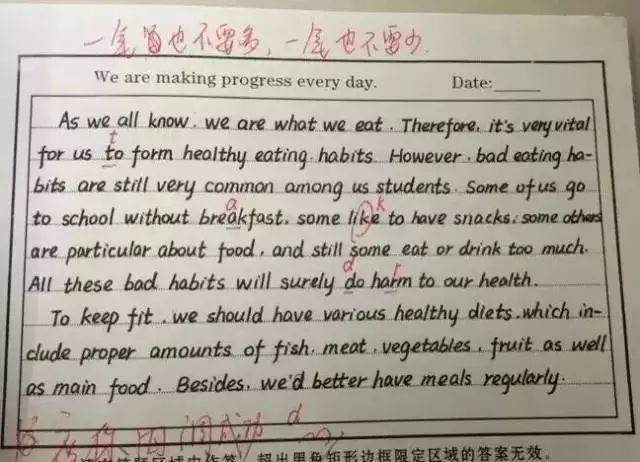 一尾也不要多,一尾也不要少.
We are making progress every day. Date:
As we all know, we are what we eat. Therefore, it's very vital
t
for us to form healthy eating habits. However, bad eating ha-
bits are still very common among us students. Some of us go
a k
to school without breakfast, some like to have snacks, some others
are particular about food, and still some eat or drink too much.
d r
All these bad habits will surely do harm to our health.
To keep fit, we should have various healthy diets, which in-
clude proper amounts of fish, meat, vegetables, fruit as well
as main food. Besides, we'd better have meals regularly.
成功 d
超出黑色矩形边框限定区域的答案无效。